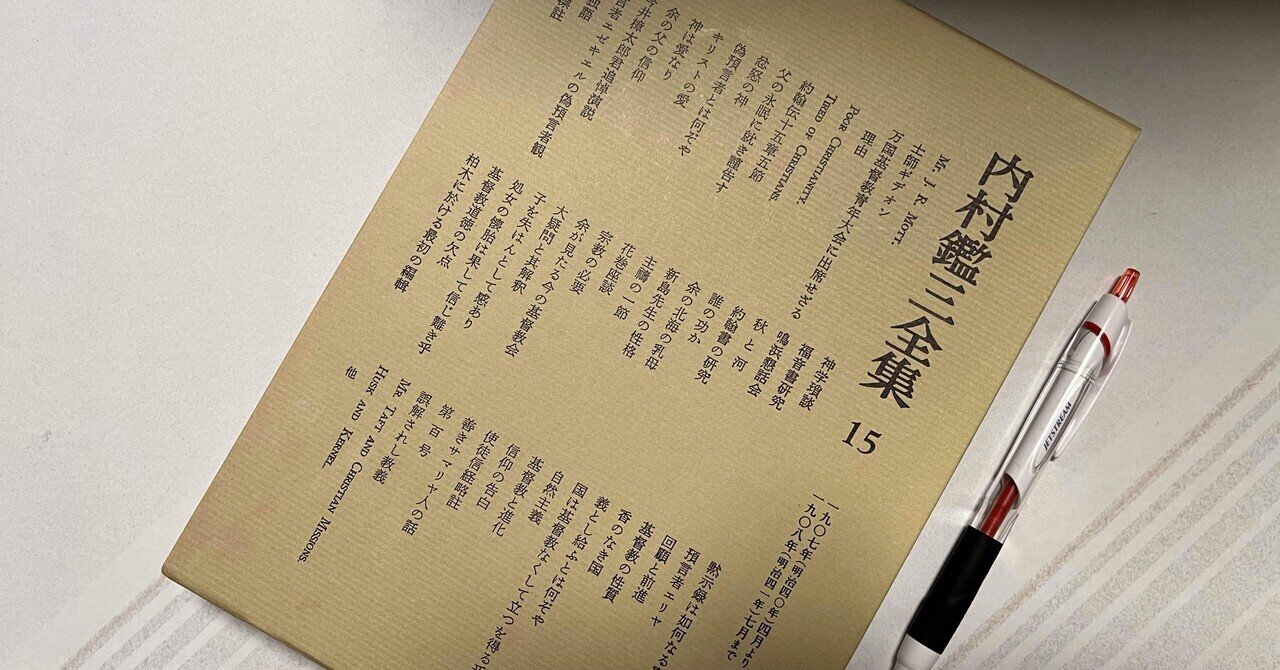 内村鑑三全集
15
一九〇七年(明治四〇年)四月より
一九〇八年(明治四一年)七月まで
Mr. J. R. Mott.
士師ギデオン
万国基督教青年大会に出席せざる
理由
Poor Christianity.
Tired of Christians.
約翰伝十五章五節
父の永眠に就き謹告す
忿怒の神
偽預言者とは何ぞや
キリストの愛
神は愛なり
余の父の信仰
今井樟太郎君追悼演説
言者エゼキエルの偽預言者観
独語
標註
神学瑣談
福音書研究
鳴浜懇話会
秋と河
約翰書の研究
誰の功か
余の北海の乳母
新島先生の性格
主禱の一節
花巻座談
宗教の必要
余が見たる今の基督教会
大疑問と其解釈
子を失はんとして感あり
処女の懐胎は果して信じ難き乎
基督教道徳の欠点
柏木に於ける最初の編輯
黙示録は如何なる
預言者エリヤ
回顧と前進
基督教の性質
香のなき国
義とし給ふとは何ぞや
国は基督教なくして立つを得る乎
自然主義
基督教と進化
信仰の告白
使徒信経略註
善きサマリヤ人の話
第百号
誤解されし教義
Mr. Taft and Christian Missions
Husk and Kernel
他
JETSTREAM